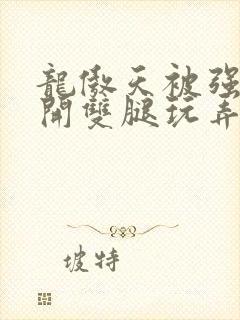 龍傲天被强
開雙腿玩弄
坡特